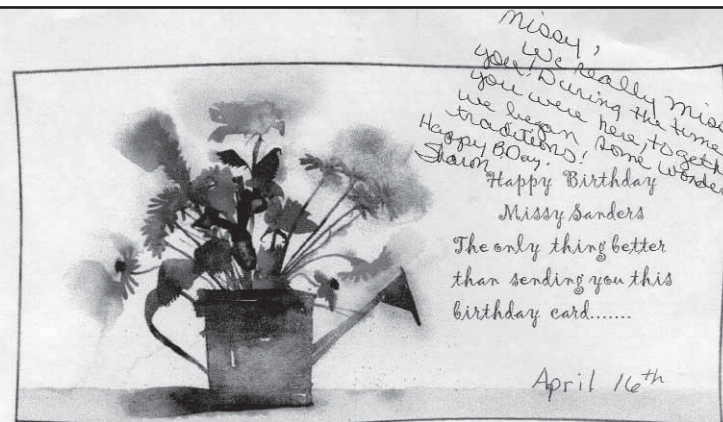 Missy,
We really miss
you! During the time
you were here, togeth
we began some wonde
traditions!
Happy B.Day.
Sharon
Happy Birthday
Missy Sanders
The only thing better
than sending you this
birthday card.......
April 16th